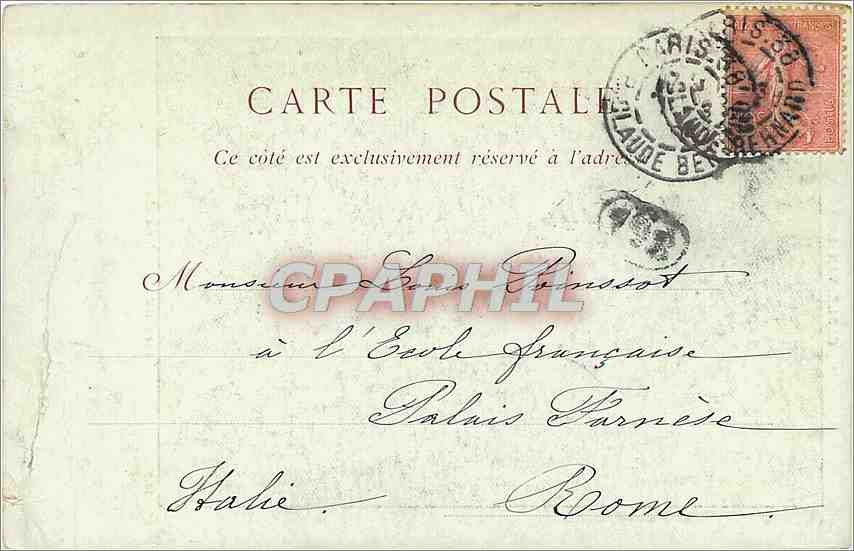 CARTE POSTALE
Ce côté est exclusivement réservé à l'adres
PARIS.38
CLAUDE BERNARD
Monsieur Louis Poinssot
CPAPHIL
à l'Ecole française
Palais Farnèse
Italie. Rome.